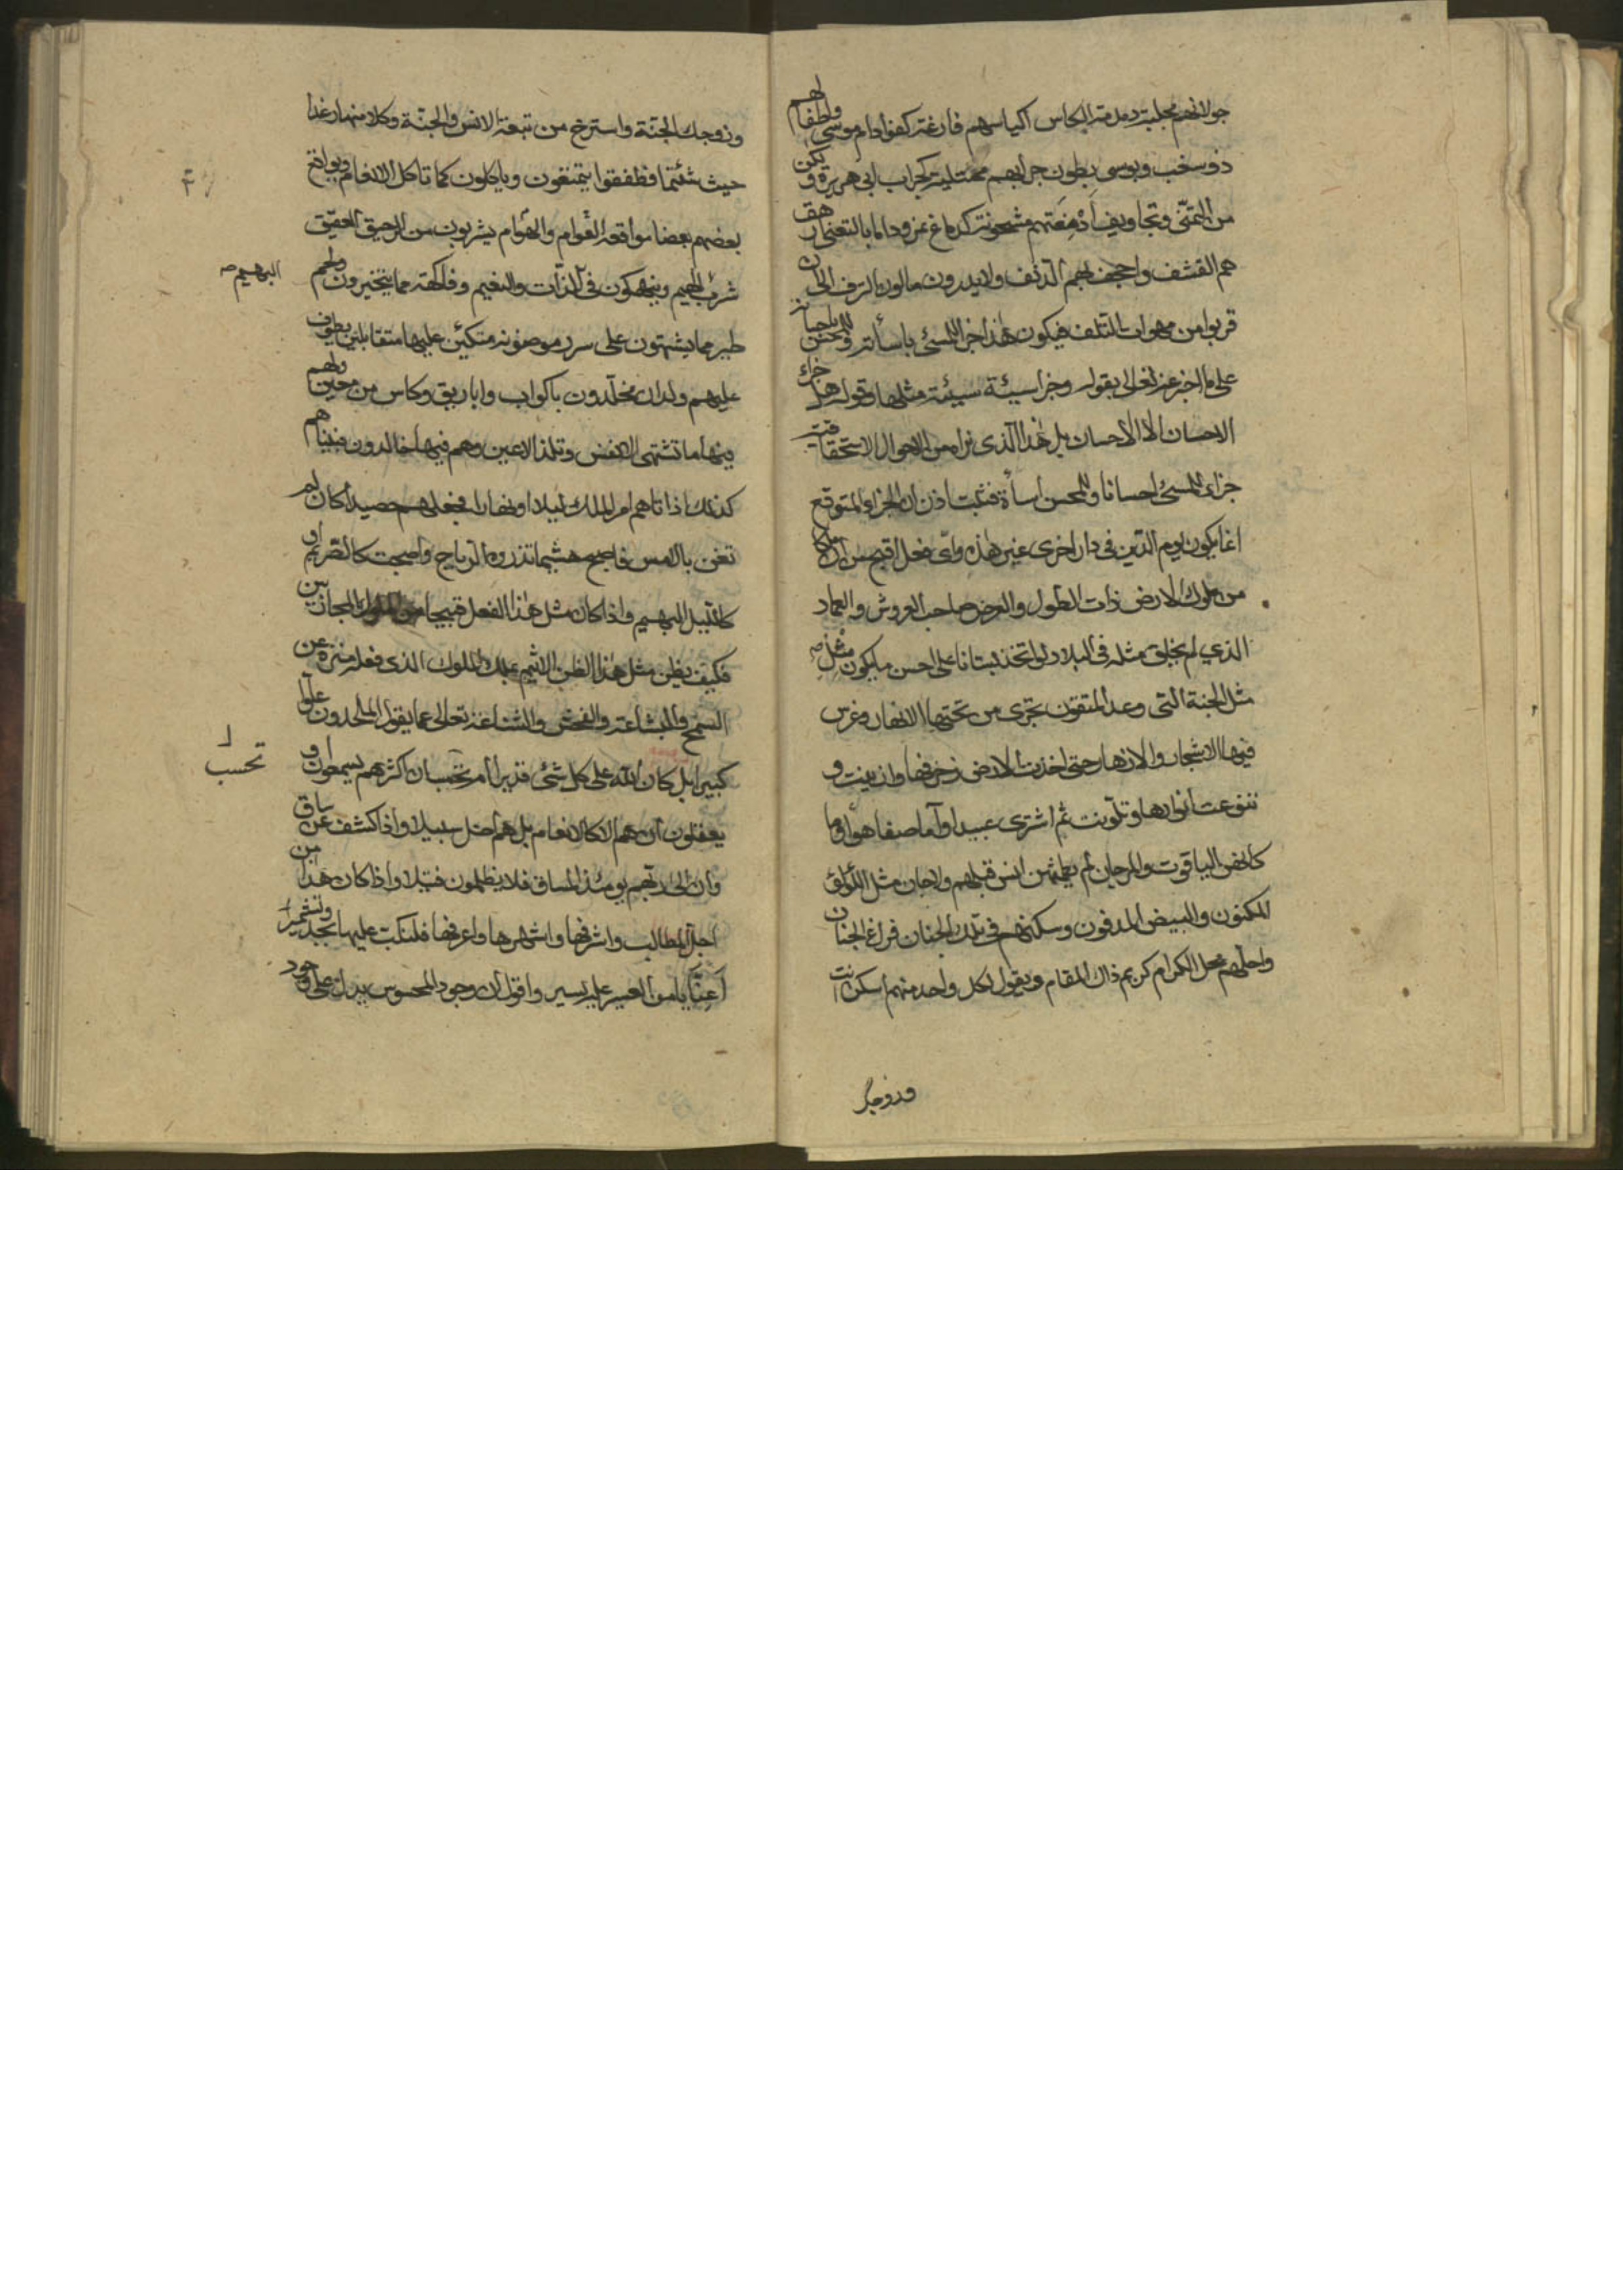 جولانهم مجلبة دمدمة الكاس اكياسهم فارغة كفؤاد ام موسى ولطفا لهم
ذو سغب وبوسى بطون جرابهم ممتلية كجراب ابى هريرة و
من التمنى وتجاويف ادمغتهم مشحونة كدماغ نمرود اماما بالتعنى
هم القشف واجحف بهم الدنف ولا يدرون مالون الترف الى ان
قربوا من مهوات التلف فيكون هذا جزاء للمسئ باسأته وللمحسن باحسانه
على ما اخبر عنه تعالى بقوله وجزاء سيئة سيئة مثلها وقوله هل جزاء
الاحسان الا الاحسان بل هذا الذى نراه من الاحوال الاستحقاقية
جزاء للمسئ احسانا وللمحسن اسأة فثبت اذن ان الجزاء المتوقع
انما يكون يوم الدين فى دار اخرى غير هذه واى فعل اقبح من ان ملكا
من ملوك الارض ذات الطول والعرض صاحب العروش والعماد
الذي لم يخلق مثله فى البلاد لو اتخذ بستانا على احسن ما يكون مثل
مثل الجنة التى وعد المتقون تجرى من تحتها الانهار وغرس
فيها الاشجار والازهار حتى اخذت الارض زخرفها وازينت و
تنوعت انوارها وتلونت ثم اشترى عبيدا وآما صفا هواؤها
كانهن الياقوت والمرجان لم يطمثهن انس قبلهم ولا جان مثل اللؤلؤ
المكنون والبيض المدفون وسكنهم فى تلك الجنان فراغ الجنان
واحلهم محل الكرام كريم ذاك المقام ويقول لكل واحد منهم اسكن انت
وزوجك
وزوجك الجنة واسترخ من تبعة الانس والجنة وكلا منها رغدا
حيث شئتما فطفقوا يتمتعون وياكلون كما تاكل الانعام ويواقع
بعضهم بعضا مواقعة الغوام والهوام يشربون من الرحيق العقيق
شرب الهيم وينهمكون فى اللذات والنعيم وفاكهة مما يتخيرون ولحم
البهيم صح
طير مما يشتهون على سرر موضونة متكئين عليها متقابلين يطوف
عليهم ولدان مخلدون باكواب واباريق وكاس من معين ولهم
فيها ما تشتهى الانفس وتلذ الاعين وهم فيها خالدون فبينا هم
كذلك اذ اتاهم امر الملك ليلا او نهارا فجعلهم حصيدا كان لم
تغن بالامس فاصبح هشيما تذروه الرياح واصبحت كالصريم او
كالليل البهيم واذا كان مثل هذا الفعل قبيحا من الملوك المجازيين
فكيف يظن مثل هذا الظن الاثيم بملك الملوك الذى فعله منزه عن
السمج والبشاعة والفحش والشناعة تعالى عما يقول الملحدون علوا
كبيرا بل كان الله على كل شئ قديرا ام تحسب ان اكثرهم يسمعون او
تحسب
يعقلون ان هم الا كالانعام بل هم اضل سبيلا واذا كشف عن ساق
وان الى ربهم يومئذ المساق فلا يظلمون فتيلا واذا كان هذا من
اجل المطالب واشرفها واشهرها واعرفها فلنكب عليها بجد وتشمير
اعنا يا من العسير عليه يسير واقول ان وجود المحسوس يدل على وجود